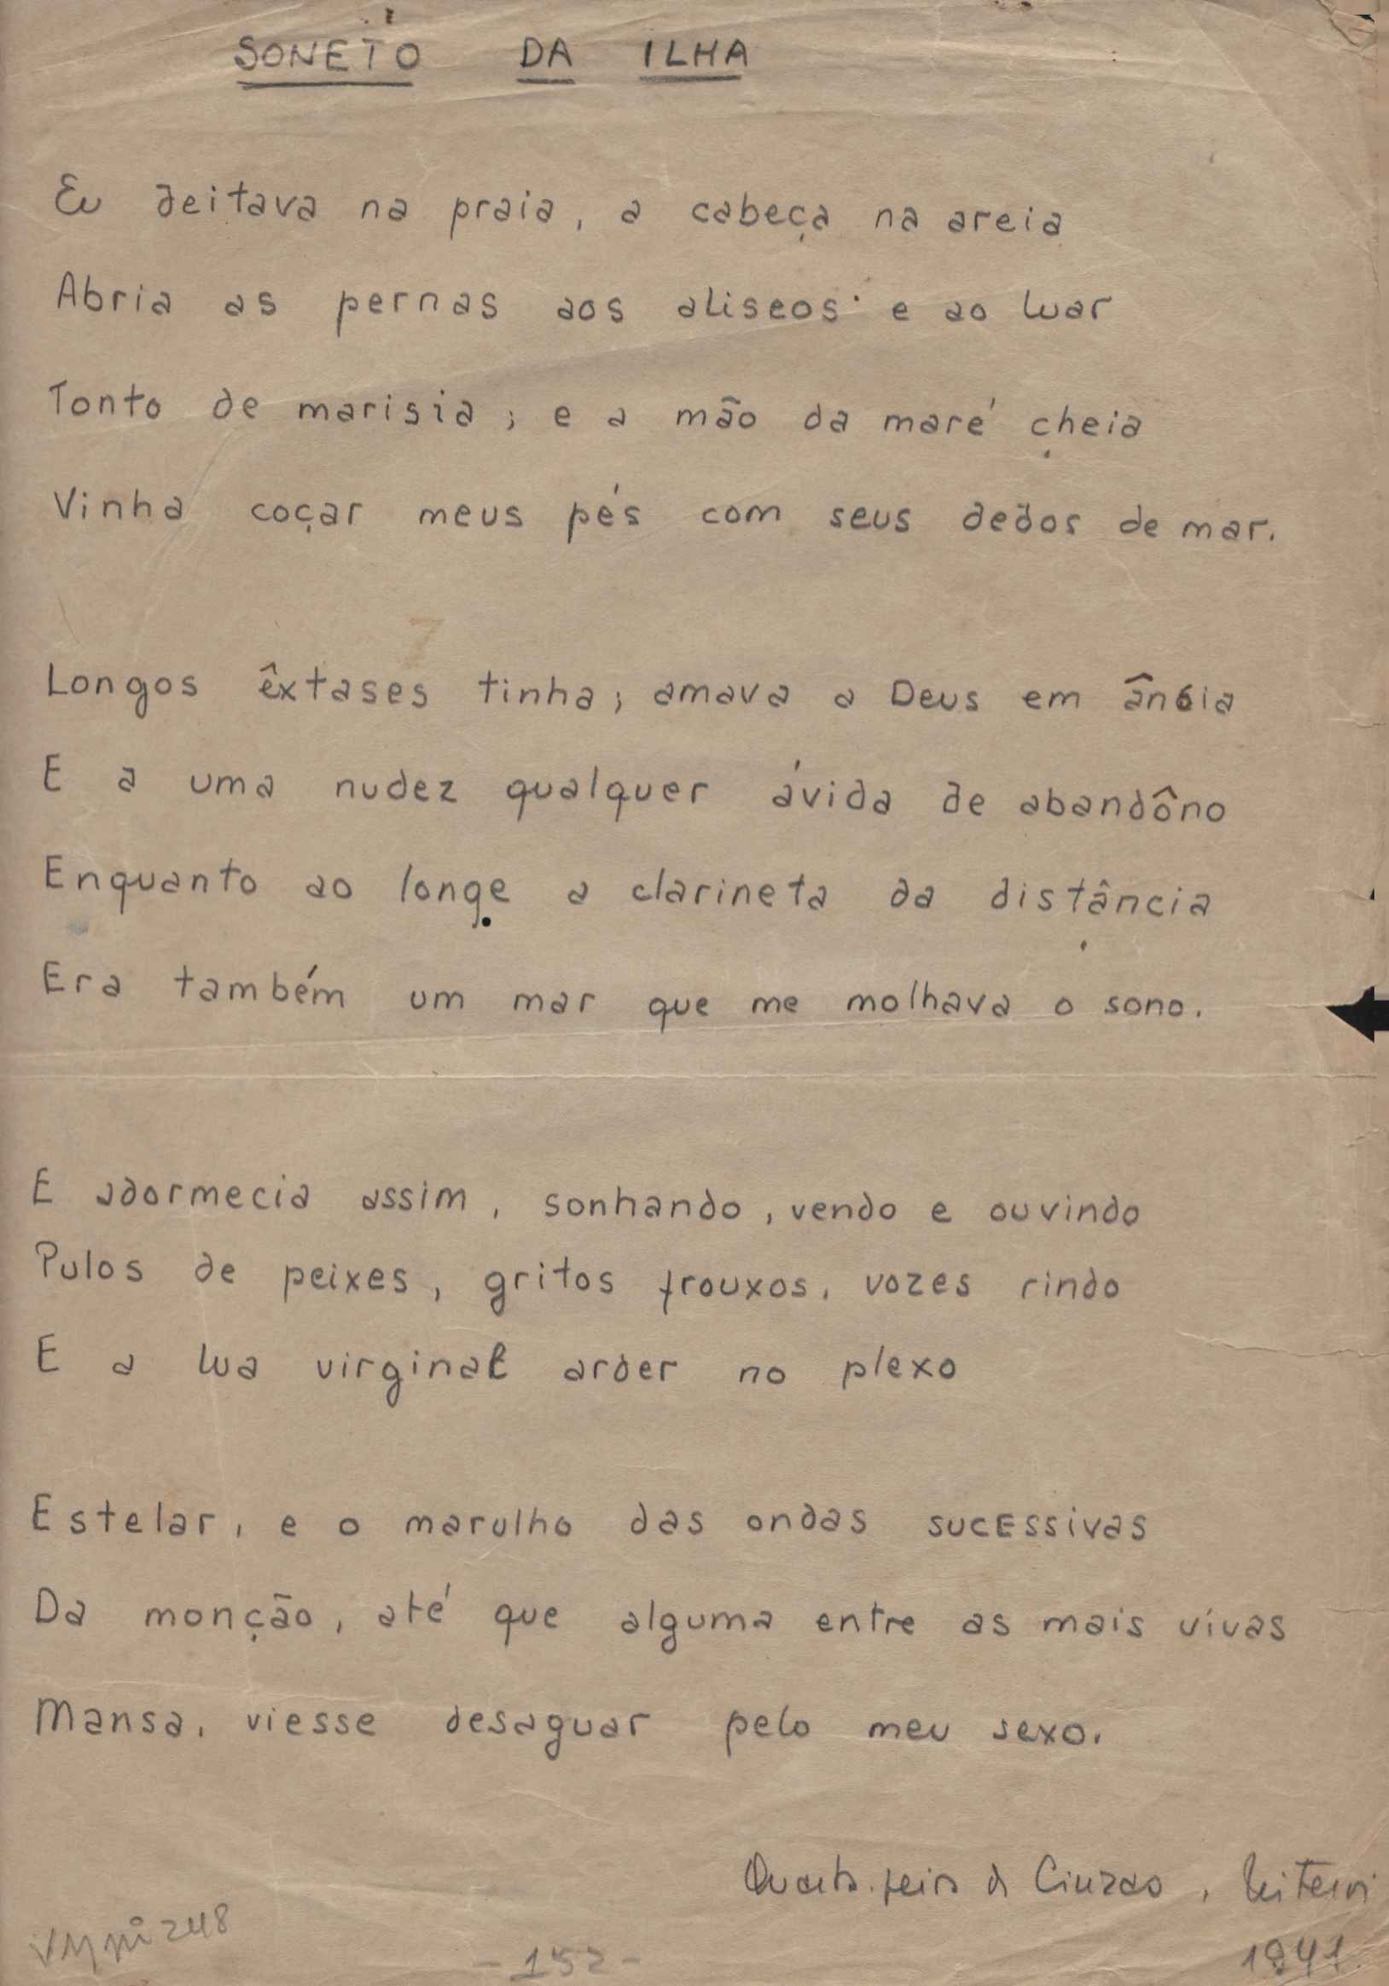 SONETO DA ILHA
Eu deitava na praia, a cabeça na areia
Abria as pernas aos aliseos e ao luar
Tonto de marisia; e a mão da maré cheia
Vinha coçar meus pés com seus dedos de mar.
Longos êxtases tinha; amava a Deus em ânsia
E a uma nudez qualquer ávida de abandôno
Enquanto ao longe a clarineta da distância
Era também um mar que me molhava o sono.
E adormecia assim, sonhando, vendo e ouvindo
Pulos de peixes, gritos frouxos, vozes rindo
E a lua virginal arder no plexo
Estelar, e o marulho das ondas sucessivas
Da monção, até que alguma entre as mais vivas
Mansa, viesse desaguar pelo meu sexo.
Quarta-feira de Cinzas, Niteroi
1941
248
-152-